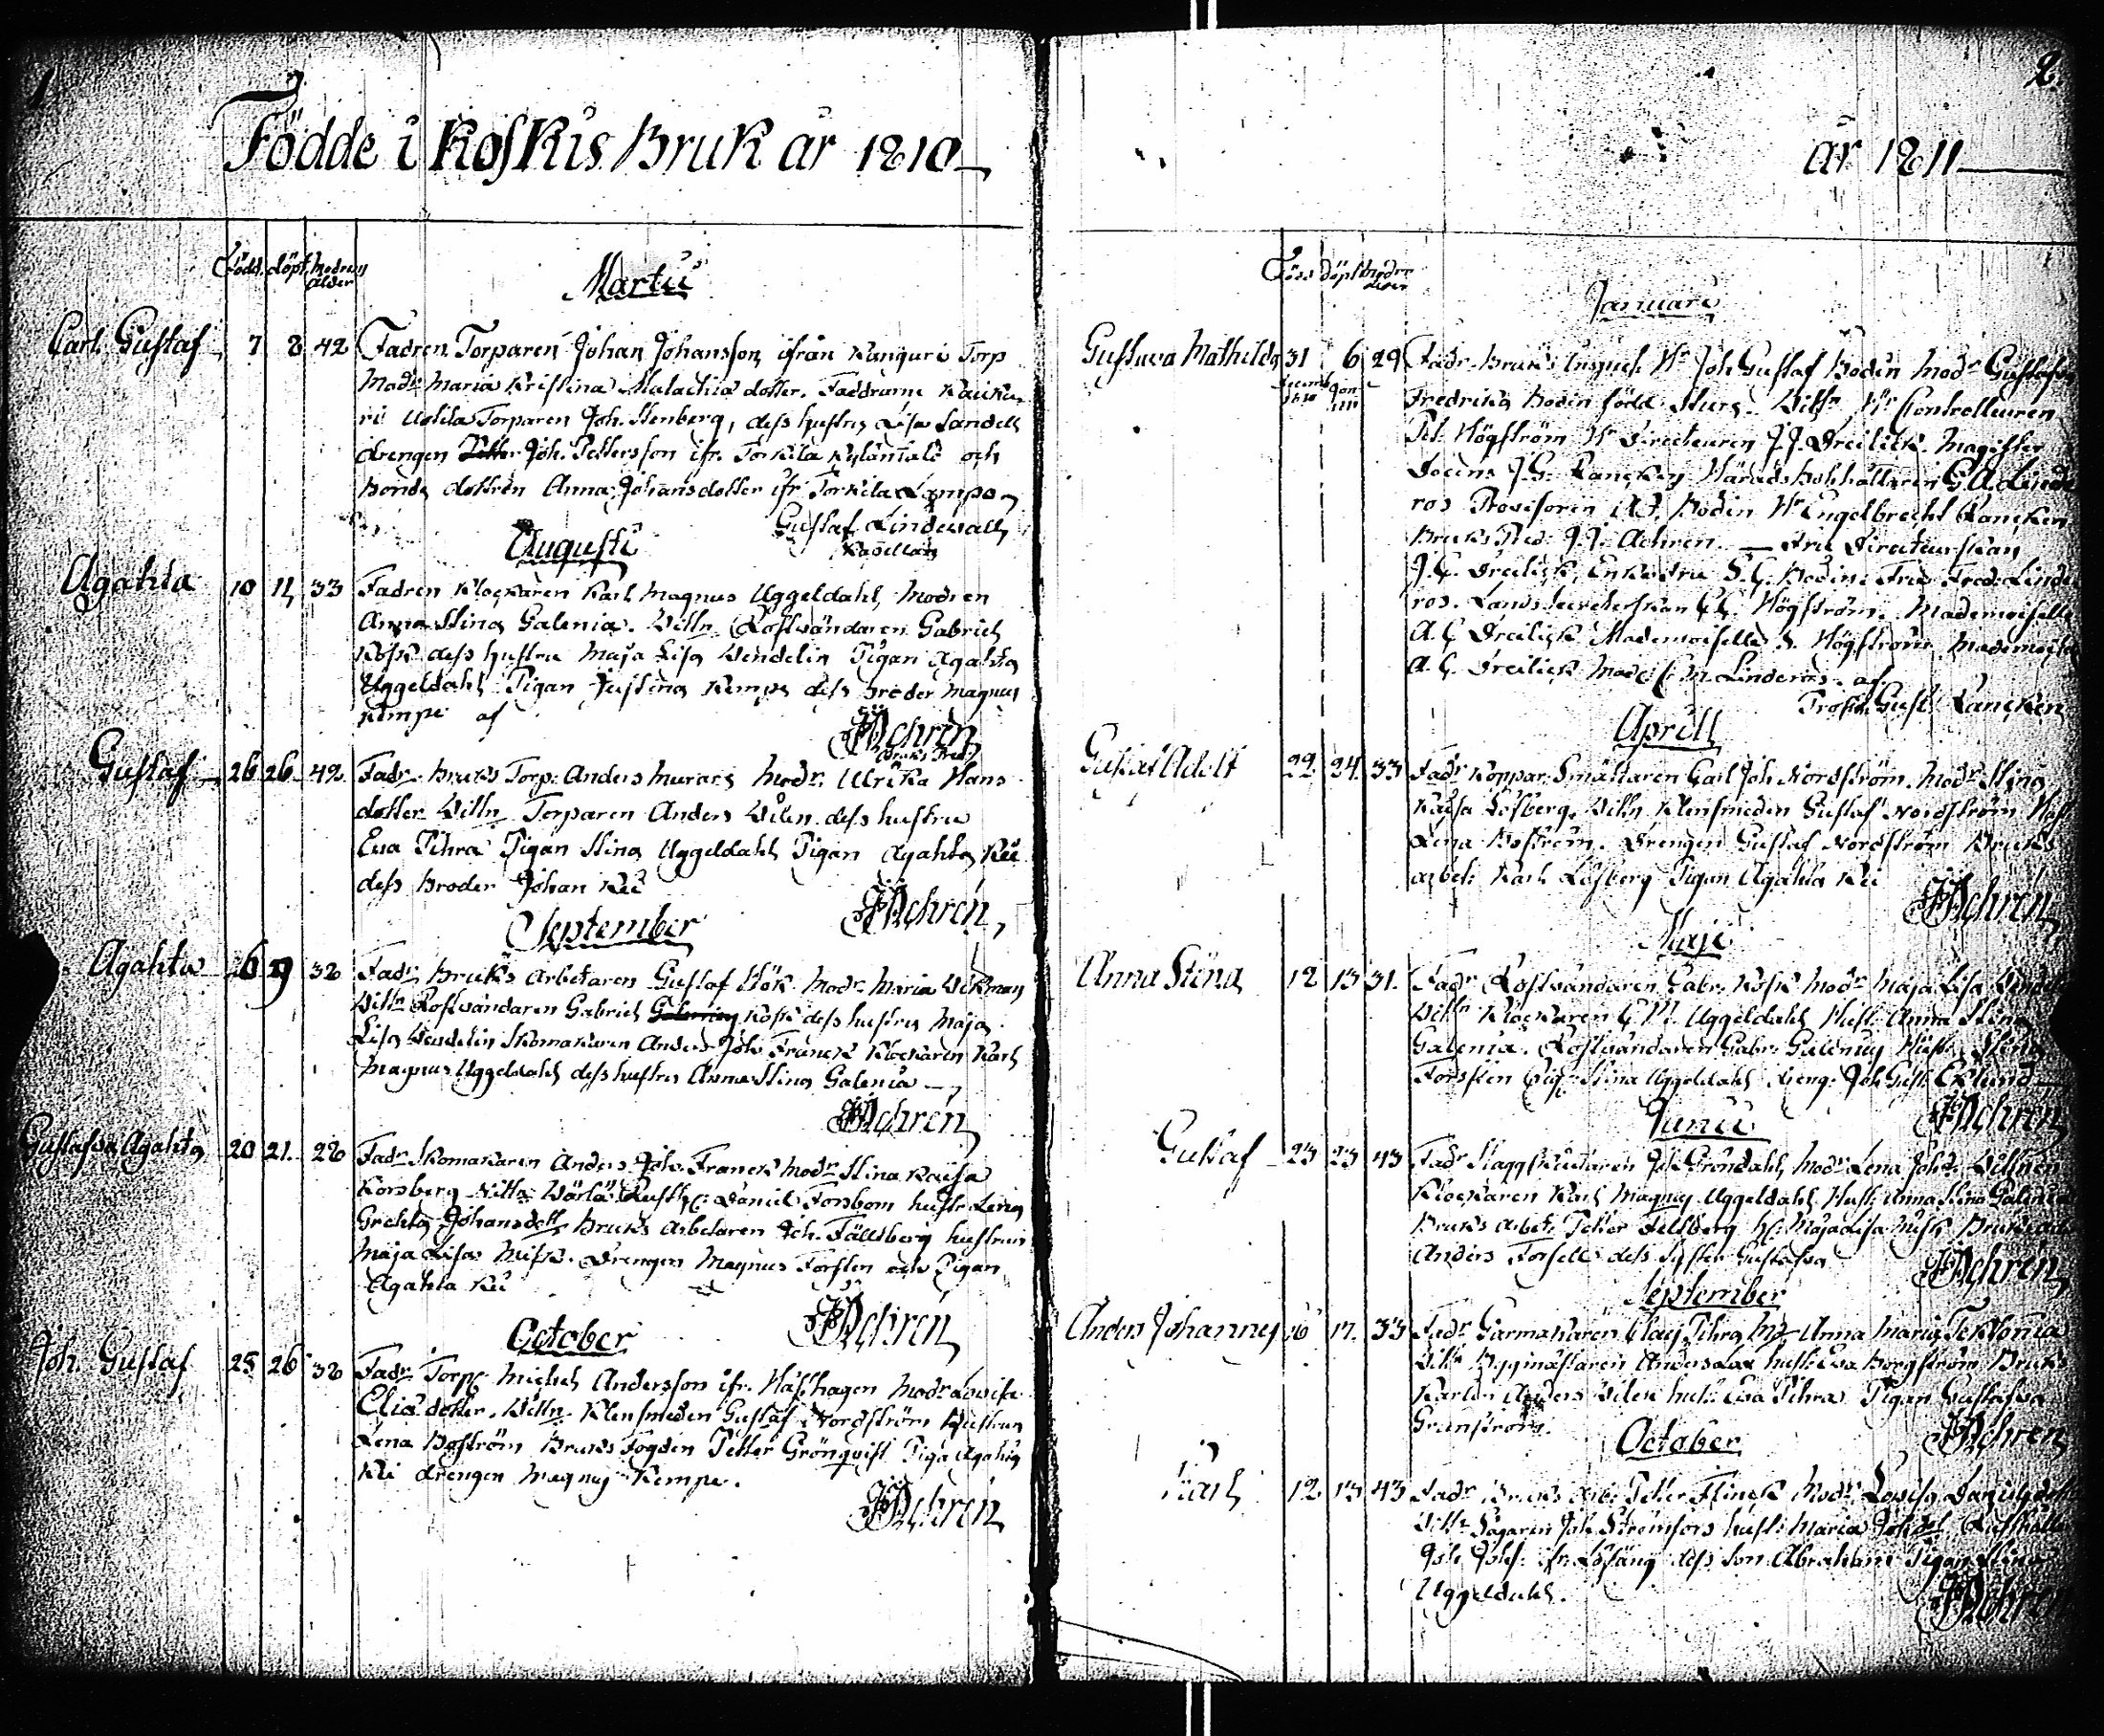 1
Födde i Koskis Bruk år 1810
Född döpt modrens
ålder
Martii
Carl Gustaf 7 8 42 Fadren Torparen Johan Johansson ifrån Kanguri Torp
Modr Maria Kristina Malachia dotter. Faddrarne
ri Torparen Joh. Stenberg, dess hustru Lisa Sandell
drengen Joh. Pettersson ifr. Torkila Kyläntalo och
Bonde dottren Anna Johansdotter ifr Torkila Lempo
Gustaf Lindewall
Kapellan
Augusti
Agahta 10 11 33 Fadren Klockaren Karl Magnus Uggeldahl, Modren
Anna Stina Galenia. Vittn. Rostvändaren Gabriel
Kösk dess hustru Maja Lisa Wendelin Pigan Agahta
Uggeldahl Pigan Justina Kempe dess broder Magnus
Kempe af
JJAchrén
Bruks Pred.
Gustaf 26 26 42 Fadr. Bruks Torp. Anders Murars Modr. Ulrika Hans
dotter Vittn Torparen Anders Vilen dess hustru
Eva Pihra Pigan Stina Uggeldahl Pigan Agahta Kii
dess Broder Johan Kii
JJAchrén
September
Agahta 26 29 32 Fadr. Bruks arbetaren Gustaf Hök. Modr. Maria Vikman
Vittn Rostvändaren Gabriel Galenius Kösk dess hustru Maja
Lisa Wendelin Skomakaren Anders Joh. Franck Klockaren Karl
Magnus Uggeldahl dess hustru Anna Stina Galenia
JJAchrén
Gustafva Agahta 20 21 28 Fadr. Skomakaren Anders Joh. Franck Modr Stina Kaisa
Korsberg Vittn. Daniel Forsbom hustr Lena
Grehta Johansdott Bruks arbetaren Joh. Fällsberg hustrun
Maja Lisa. Drengen Magnus Forsten och Pigan
Agahta Kii
JJAchrén
October
Joh. Gustaf 25 26 32 Fadr. Torp. Michel Andersson ifr. Hässhagen Modr Lovisa
Elia dotter. Vittn. Klensmeden Gustaf Nordström Hustrun
Lena Boström Bruks Fogden Petter Grönqvist Piga Agahta
Kii drengen Magnus Kempe.
JJAchrén
2.
år 1811
Född döpt modr
ålder
Januari
Gustava Mathilda 31 6 29 Fadr. Bruks Joh Gustaf Bodin Modr Gustafva
Decemb
1810 Jan
1811
Fredrika Bodin född Sturs. Vittn Hr Controlleuren
Pet. Högström Hr Directeuren J.J. Dreilick. Magister
Docens J.G. Rancken Härads Bokhållaren G.A. Linde
ros Provisoren Bodin Hr Engelbrecht Rancken
Bruks Pred. J.J. Achren. Fru Directeurskan
J.C. Dreilick, Enkefru S.C. Bodin Fru Fred. Linde
ros. Lands Secreterskan C.C. Högström. Mademoiselle
A. C Dreilick Mademoiselle S. Högström Mademoiselle
A. C. Dreilick M. Linderos. af
Gust. Rancken
Aprill
Gustaf Adolf 22 24 33 Fadr Koppar Smältaren Carl Joh Nordström. Modr. Stina
Kaisa Lösberg. Vittn Klensmeden Gustaf Nordström Hust
Lena Boström. Drengen Gustaf Nordström Bruks
arbet. Karl Lösberg Pigan Agahta Kii
JJAchrén
Maji
Anna Stina 12 13 31 Fadr. Rostvändaren Gabr. Kösk Modr Maja Lisa Wendel
Vittn Klockaren C.M. Uggeldahl Hust. Anna Stina
Galenia. Rostvändaren Gabr. Galenius Hust. Stina
Forsten Pig. Stina Uggeldahl Dreng. Joh Gust. Eklund
JJAchrén
Junii
Gustaf 23 23 43 Fadr Joh Gröndahl, Modr Lena Joh.d. Vittnen
Klockaren Karl Magnus Uggeldahl Hust. Anna Stina Galenia
Bruks arbet. Petter Fellsberg H. Maja Lisa
Anders Forsell dess Syster Gustafva
JJAchrén
September
Anders Johannes 16 17 33 Fadr Garmakaren Claes Pihra M. Anna Maria Tektonia
Vittn Byggmästaren Anders Lax hust. Eva Borgström Bruks
Karlen Anders Vilen hust. Eva Pihra Pigan Gustafva
Granström.
JJAchrén
October
Karl 12 13 43 Fadr Bruks arb. Petter Flinck Modr. Lovisa
Vittn Sågaren Joh Strömfors hust. Maria Joh.
Joh. Johs. dess Son Abraham Pigan Stina
Uggeldahl.
JJAchrén